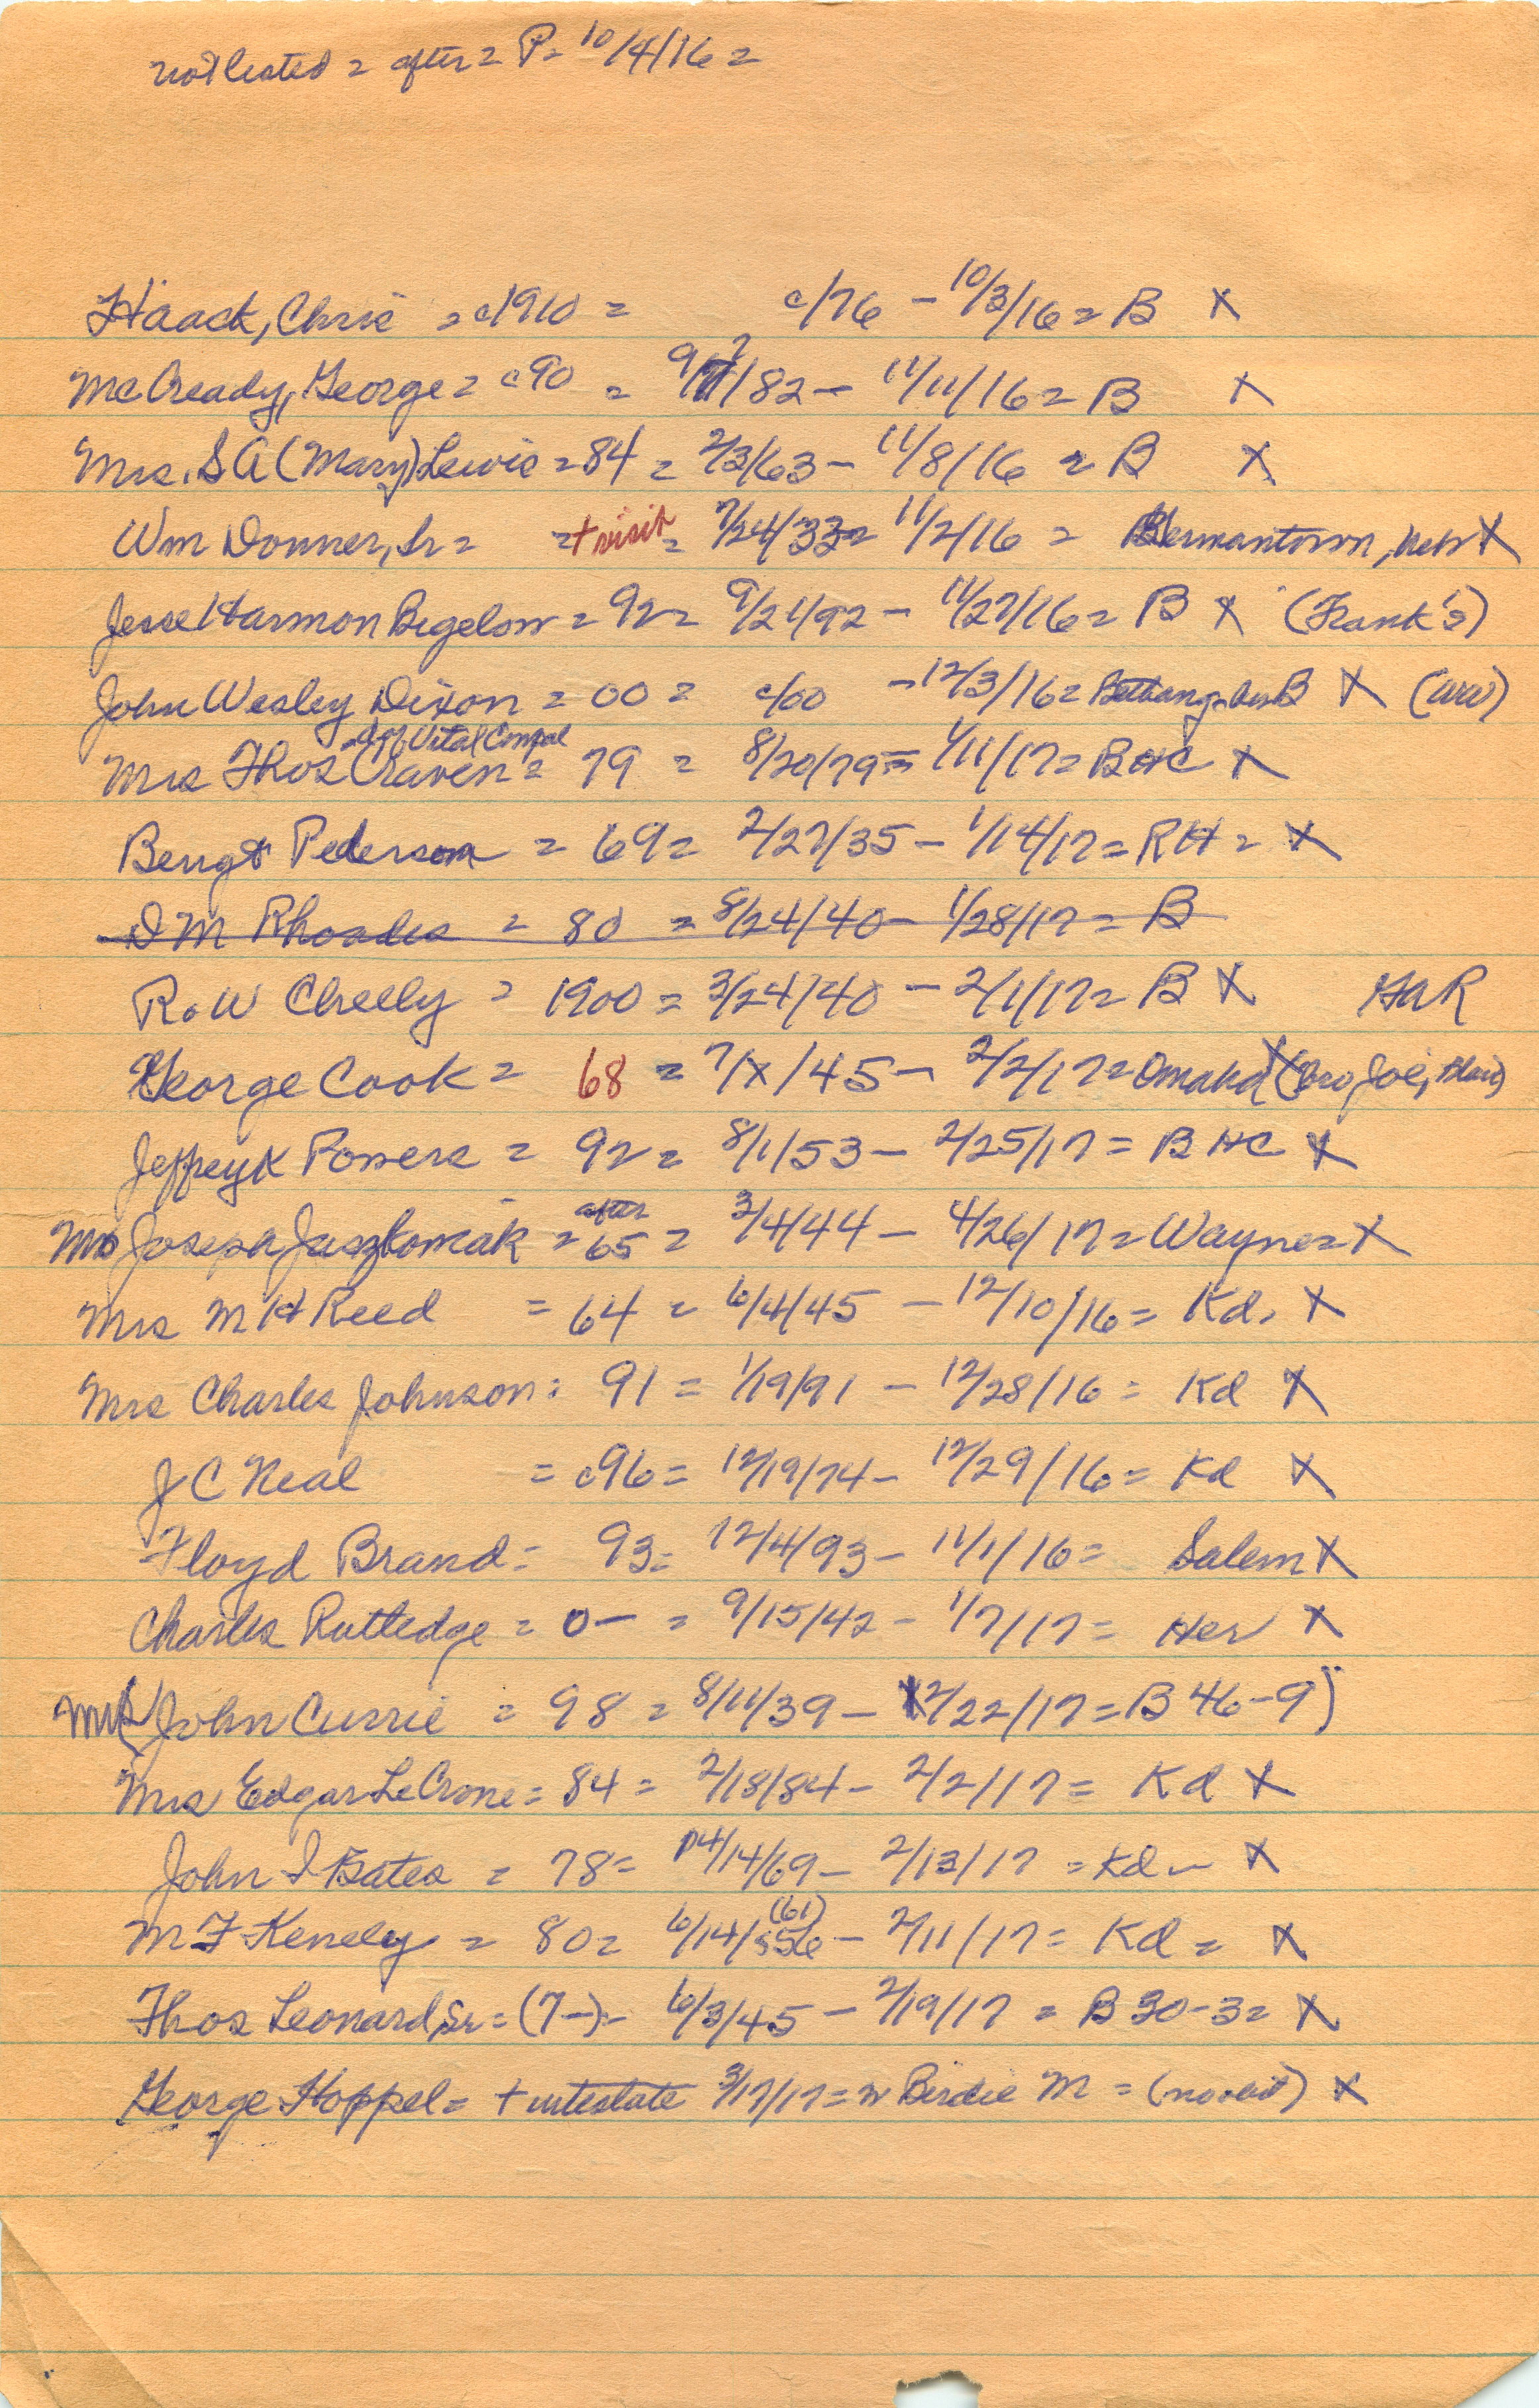 = after = P = 10/4/16 =
Haack, Chris = c1910 = c/76 - 10/3/16 = B X
McCready, George = c90 = 9/7/82 - 11/11/16 = B X
Mrs. S A (Mary) Lewis = 84 = 2/3/63 - 11/8/16 = B X
Wm Donner, Sr = = + visit = 7/24/33 = 11/2/16 = X
Jesse Harmon Bigelow = 92 = 9/21/92 - 11/27/16 = B X (Frank's)
John Wesley Dixon = 00 = c/00 - 12/3/16 = B X
Vital
Mrs Thos Craven = 79 = 8/20/79 = 1/11/17 = B HC X
Bengt Pederson = 69 = 2/27/35 - 1/14/17 = RH = X
D M Rhoades = 80 = 8/24/40 - 1/28/17 = B
R. W Chelly = 1900 = 3/24/40 - 2/1/17 = B X GAR
George Cook = 68 = 7/x/45 - 2/2/17 = Omaha X (bro Joe, Blair)
Jeffrey K Powers = 92 = 8/1/53 - 2/25/17 = B HC X
after
Joseph = 65 = 3/4/44 - 4/26/17 = Wayne = X
Mrs M H Reed = 64 = 6/4/45 - 12/10/16 = Kd. X
Mrs Charles Johnson: 91 = 1/19/91 - 12/28/16 = Kd X
J C Neal = c96 = 12/19/74 - 12/29/16 = Kd X
Floyd Brand = 93 = 12/4/93 - 11/1/16 = Salem X
Charles Rutledge = 0- = 9/15/42 - 1/7/17 = Her X
Mrs (John Currie = 98 = 8/11/39 - 12/22/17 = B 46-9)
Mrs Edgar LeCrone = 84 = 2/18/84 - 2/2/17 = Kd X
John I Bates = 78 = 4/14/69 - 2/13/17 = Kd - X
(61)
M F Kenely = 80 = 6/14/56 - 2/11/17 = Kd = X
Thos Leonard, Sr = (7-) - 6/3/45 - 2/19/17 = B 30-3 = X
George Hoppel = + intestate 3/17/17 = w Birdie M = X